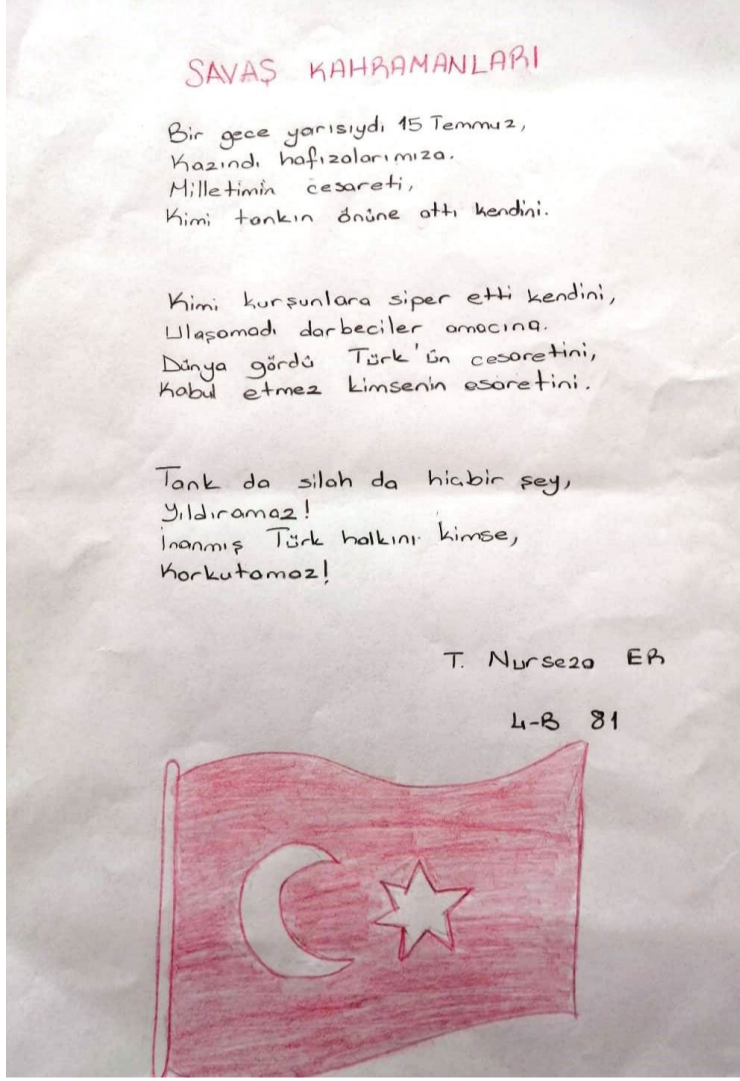 SAVAŞ KAHRAMANLARI
Bir gece yarısıydı 15 Temmuz,
Kazındı hafızalarımıza.
Milletimin cesareti,
Kimi tankın önüne attı kendini.
Kimi kurşunlara siper etti kendini,
Ulaşamadı darbeciler amacına.
Dünya gördü Türk'ün cesaretini,
Kabul etmez kimsenin esaretini.
Tank da silah da hiçbir şey,
Yıldıramaz!
İnanmış Türk halkını kimse,
Korkutamaz!
T. Nurseza ER
4-B 81